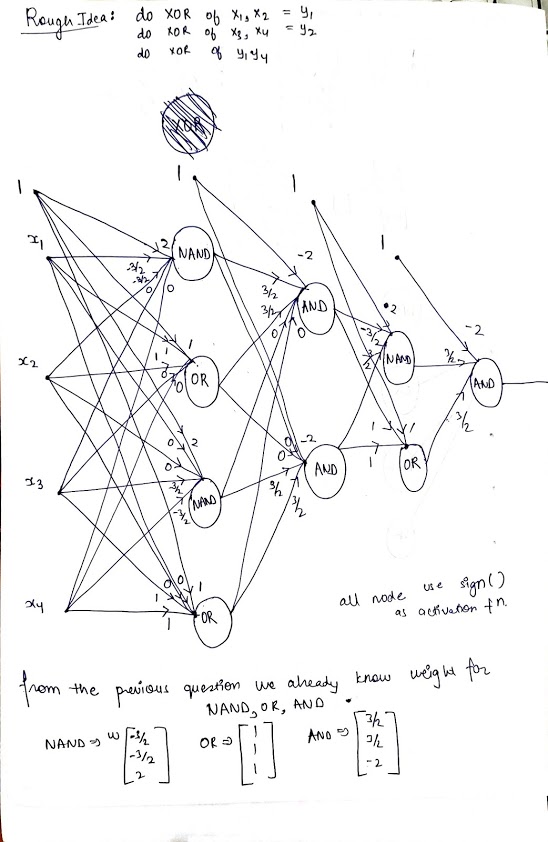 Rough Idea: do XOR of x1, x2 = y1
do XOR of x3, x4 = y2
do XOR of y1 y4
XOR
1
1
1
1
x1
x2
x3
x4
2
-3/2
-3/2
0 0
NAND
1
1 1
0
0
OR
0 2
0
-3/2
-3/2
NAND
0 0 1
1
1
OR
-2
3/2
3/2
0 0
AND
0 -2
0
3/2
3/2
AND
2
-3/2
-3/2
NAND
1 1
1
OR
-2
3/2
3/2
AND
all node use sign()
as activation fn.
from the previous question we already know weight for
NAND, OR, AND
NAND ⇒ W [-3/2 -3/2 2] OR ⇒ [1 1 1] AND ⇒ [3/2 3/2 -2]